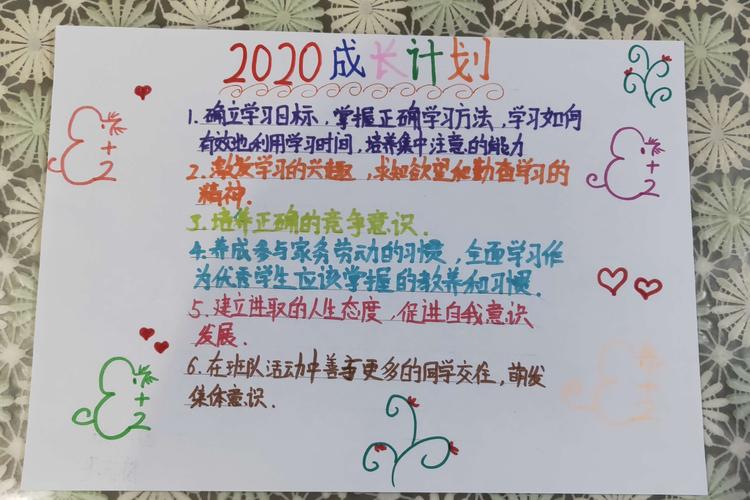 2020成长计划
1. 确立学习目标，掌握正确学习方法，学习如何
有效地利用学习时间，培养集中注意的能力
2. 激发学习的兴趣，求知欲望和勤奋学习的
精神．
3. 培养正确的竞争意识．
4. 养成参与家务劳动的习惯，全面学习作
为优秀学生应该掌握的教养和习惯．
5. 建立进取的人生态度，促进自我意识
发展．
6. 在班队活动中善与更多的同学交往，萌发
集体意识．